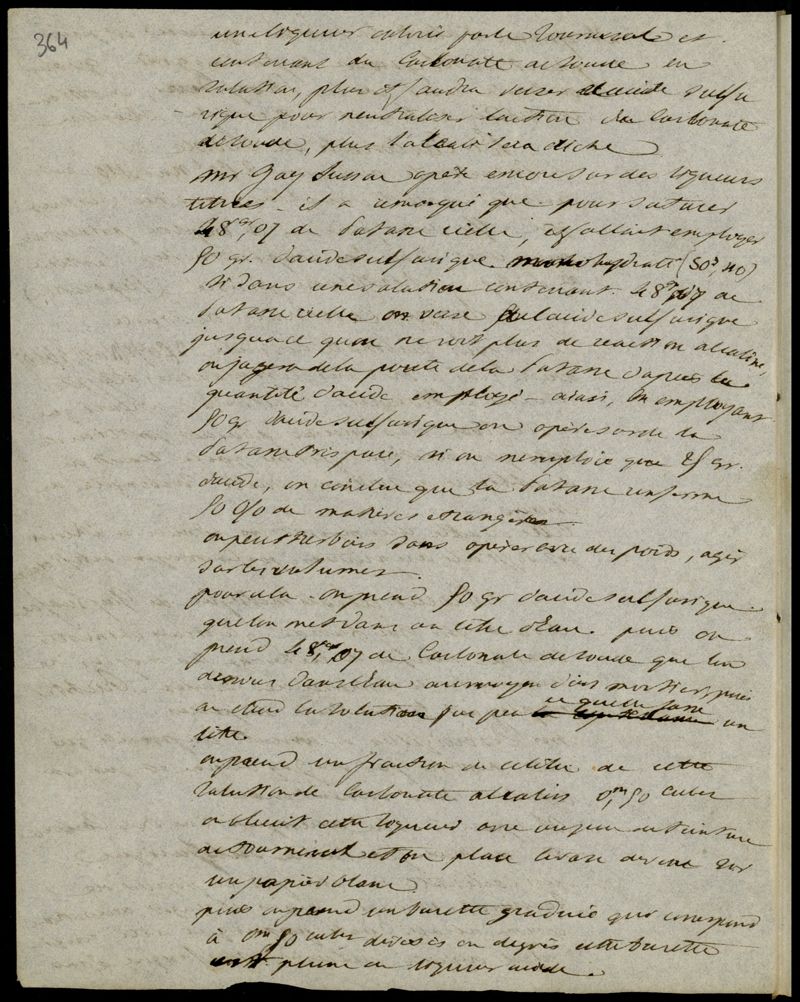 364
une liqueur colorée par le Tournesol et
contenant du Carbonate de soude en
solution, plus il faudra verser d'acide sulfu
rique pour neutraliser l'action du Carbonate
de soude, plus l'alcali sera riche
Mr Gay Lussac opère encore sur des liqueurs
titrées - il a remarqué que pour saturer
48gr,07 de Potasse réelle, il fallait employer
50 gr. d'acide sulfurique monohydraté (SO3, HO)
Si dans une solution contenant 48gr,07 de
Potasse réelle on verse de l'acide sulfurique
jusqu'a ce qu'on ne voit plus de reaction alcaline,
on jugera de la pureté de la Potasse d'après la
quantité d'acide employé - ainsi, en employant
50 gr d'acide sulfurique on opère sur de la
Potasse très pure, si on n'emploie que 25 gr.
d'acide, on conclue que la Potasse renferme
50 % de matières etrangères
on peut très bien sans opérer avec des poids, agir
sur les volumes.
pour cela on prend 50 gr d'acide sulfurique
que l'on met dans un litre d'Eau. puis on
prend 48gr,07 de Carbonate de soude que l'on
dissous dans l'Eau au moyen d'un mortier, puis
on etend la solution jusque ce qu'elle fasse un
litre.
on prend une fraction de ce litre de cette
solution de Carbonate alcalin 0,m50 cubes
on bleuit cette liqueur avec un peu de teinture
de Tournesol et on place le vase sur
un papier blanc
puis on prend une burette graduée qui correspond
à 0m50 cubes divisés en degrés cette burette
est pleine de liqueur acide.